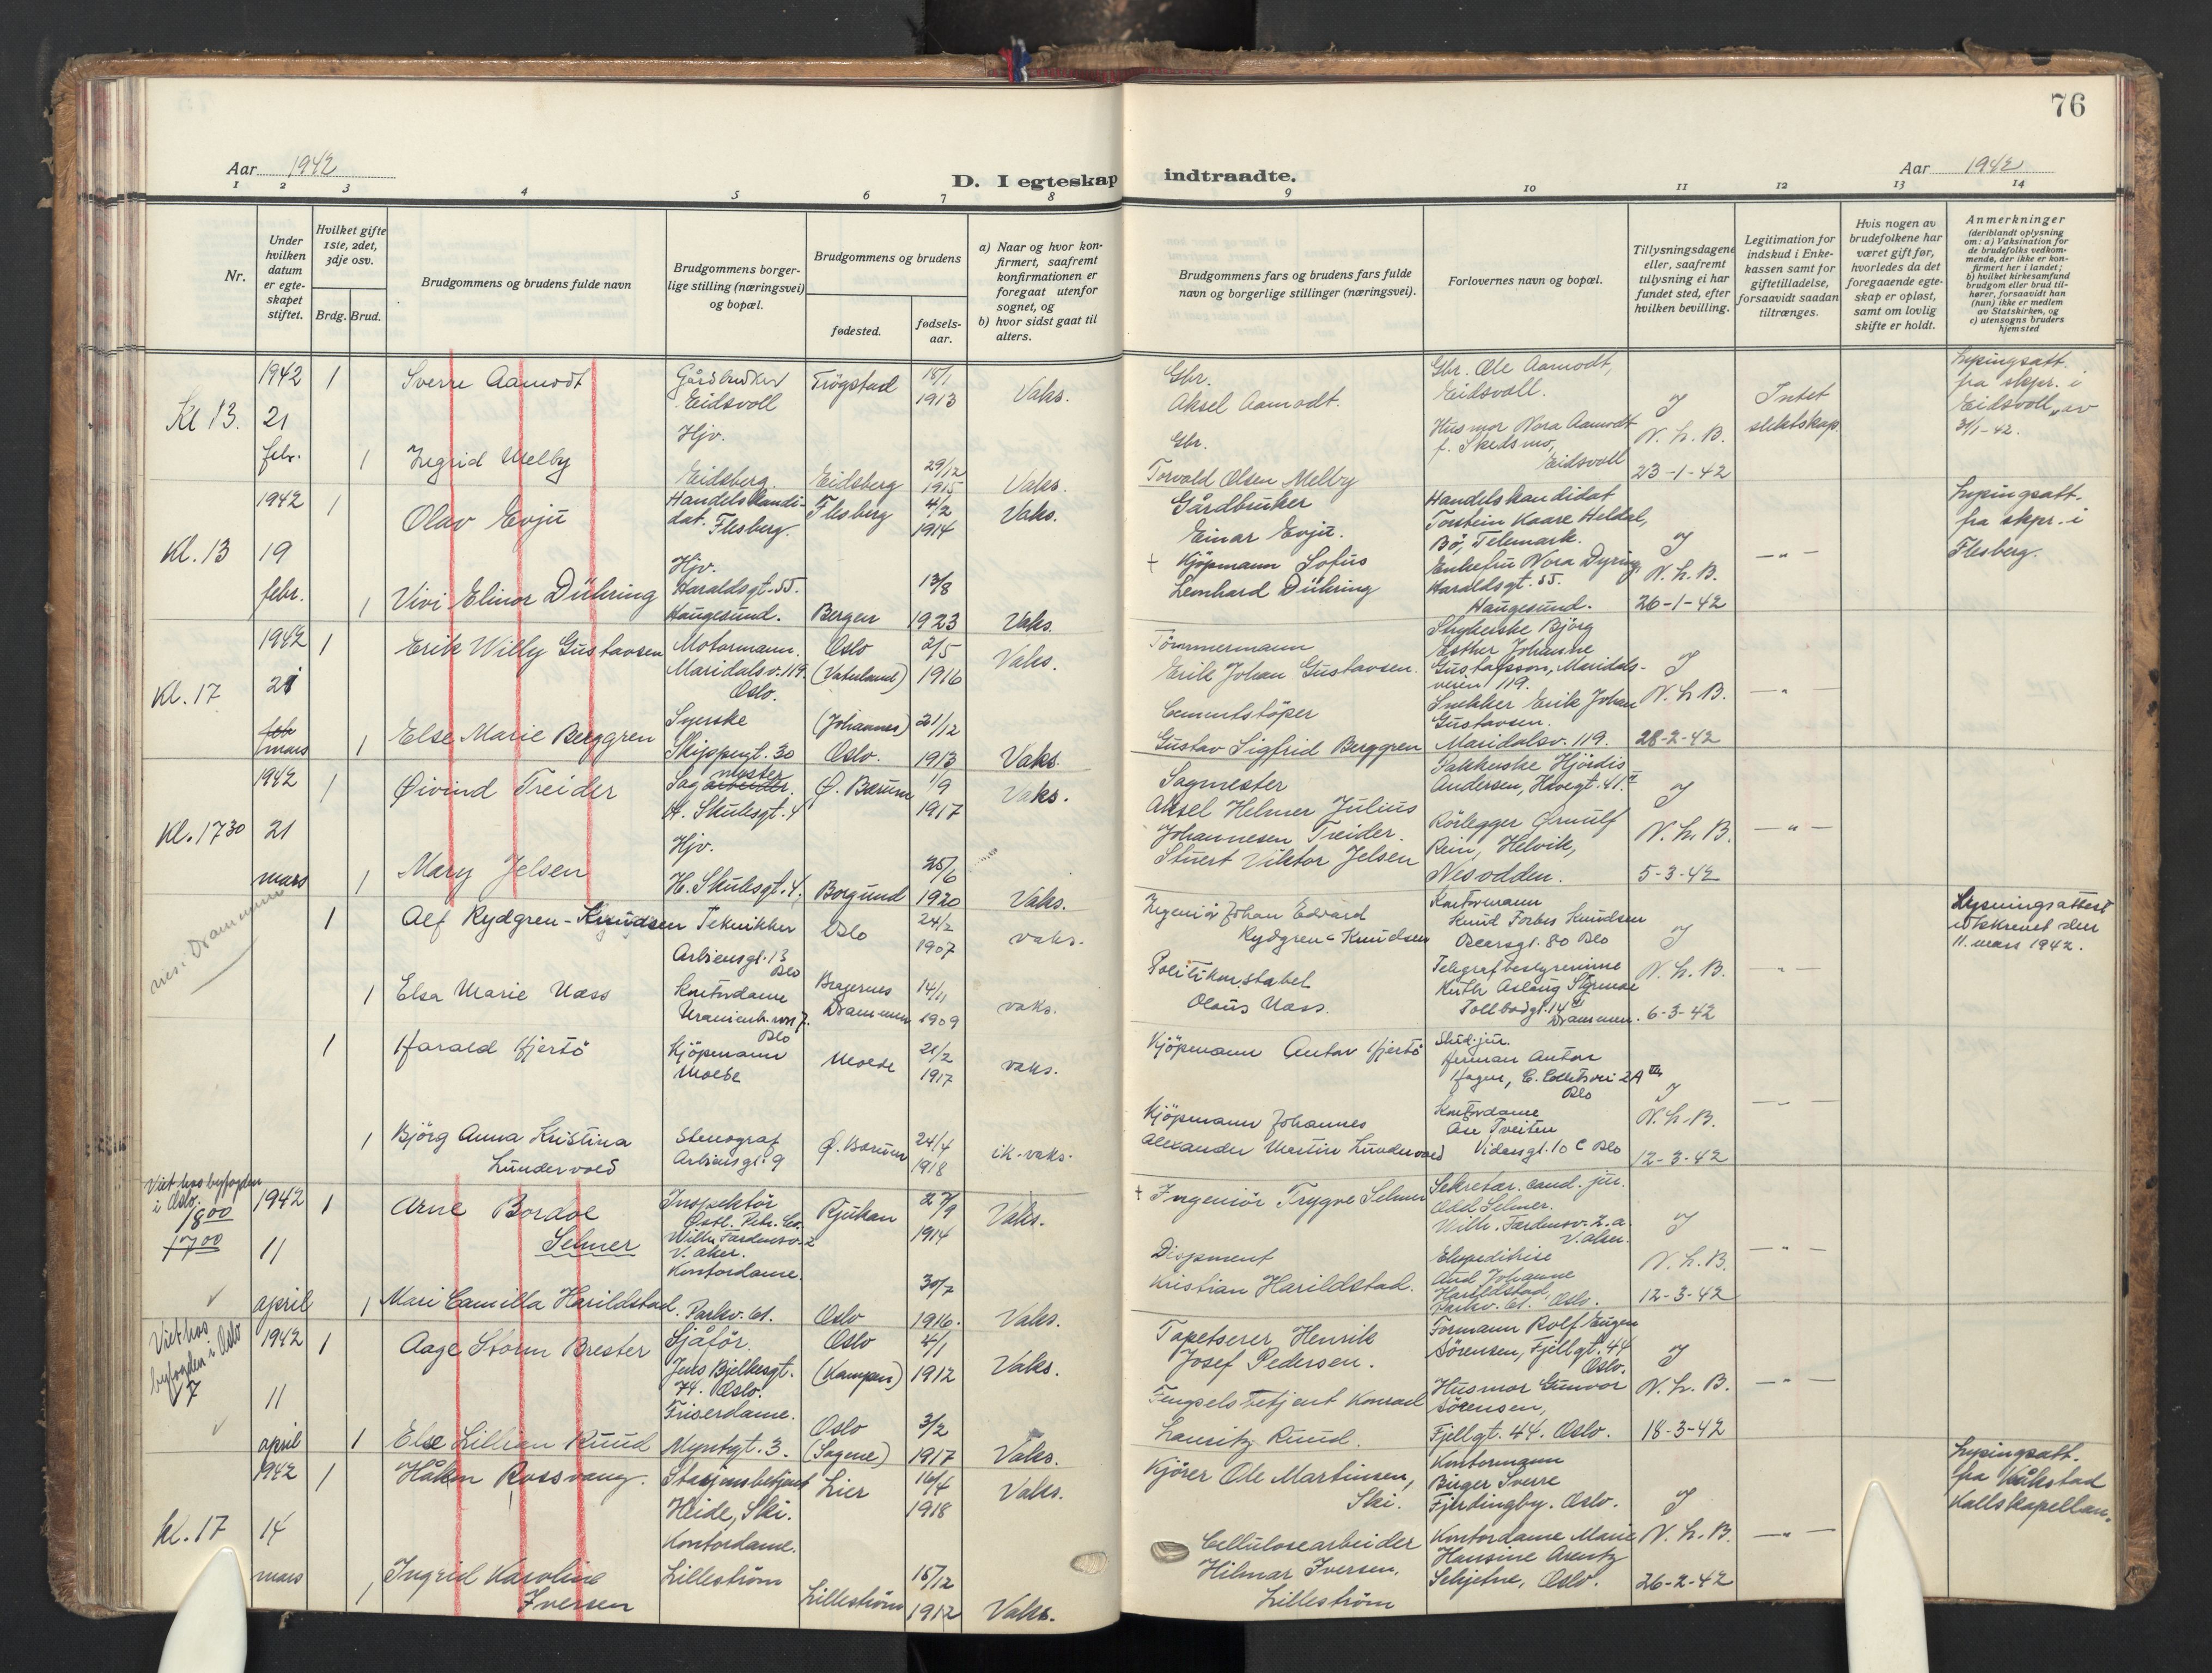 76
Aar 1942
D. I egteskap indtraadte.
Aar 1942
1 2 3 4 5 6 7 8 9 10 11 12 13 14
Nr.
Under hvilken datum er egte-skapet stiftet.
Hvilket gifte 1ste, 2det, 3dje osv.
Brdg. Brud.
Brudgommens og brudens fulde navn
Brudgommens borger-lige stilling (næringsvei) og bopæl.
Brudgommens og brudens
fødested.
fødsels-aar.
a) Naar og hvor kon-firmert, saafremt konfirmationen er foregaat utenfor sognet, og
b) hvor sidst gaat til alters.
Brudgommens fars og brudens fars fulde navn og borgerlige stillinger (næringsvei).
Forlovernes navn og bopæl.
Tillysningsdagene eller, saafremt tillysning ei har fundet sted, efter hvilken bevilling.
Legitimation for indskud i Enke-kassen samt for giftetilladelse, forsaavidt saadan tiltrænges.
Hvis nogen av brudefolkene har været gift før, hvorledes da det foregaaende egte-skap er opløst, samt om lovlig skifte er holdt.
Anmerkninger (deriblandt oplysning om: a) Vaksination for de brudefolks vedkom-mende, der ikke er kon-firmert her i landet; b) hvilket kirkesamfund brudgom eller brud til-hører, forsaavidt han (hun) ikke er medlem av Statskirken, og c) utensogns bruders hjemsted
Kl 13. 1942 21 febr.
1 Sverre Aamodt
Gårdbruker Eidsvoll
Trögstad
18/1 1913
Vaks.
Gbr. Aksel Aamodt.
Gbr. Ole Aamodt, Eidsvoll.
Husmor Nora Aamodt f. Skedsmo, Eidsvoll
J N. L. B. 23-1-42
Intet slektskap.
Lysingsatt. fra skpr. i Eidsvoll av 31/1-42.
1 Ingrid Melby
Hjv. Eidsberg.
Eidsberg
29/12 1915
Vaks.
Gbr. Torvald Olsen Melby
Kl. 13 1942 19 febr.
1 Olav Evju
Handelskandi-dat. Flesberg.
Flesberg
4/2 1914
Vaks.
Gårdbruker Einar Evju.
Handelskandidat Torstein Kaare Heldal, Bö, Telemark.
Enkefru Nora Dyring, Haraldsgt. 55. Haugesund.
J N. L. B. 26-1-42
— " —
Lysingsatt. fra skpr. i Flesberg.
1 Vivi Elinor Dühring
Hjv. Haraldsgt. 55. Haugesund.
Bergen
13/8 1923
Vaks.
+ Kjöpmann Sofus Leonhard Dühring
Kl. 17 1942 21 febr mars
1 Erik Willy Gustavsen
Motormann. Maridalsv. 119. Oslo.
Oslo (Vaterland)
2/5 1916
Vaks.
Tömmermann Erik Johan Gustavsen.
Strykerske Björg Esther Johanne Gustafsson, Maridals-veien 119.
Snekker Erik Johan Gustavsen. Maridalsv. 119.
J N. L. B. 28-2-42
— " —
1 Else Marie Berggren
Syerske Skippergt. 30
(Johannes) Oslo.
21/12 1913
Vaks
Cementstöper Gustav Sigfrid Berggren
Kl. 17 30 1942 21 mars
1 Øivind Treider
Sagarbeider. mester H. Skulesgt. 4
Ø. Bærum
1/9 1917
Vaks.
Sagmester Aksel Helmer Julius Johannesen Treider.
Pakkerske Hjördis Andersen, Havegt. 41 II
Rörlegger Ørnulf Rein, Helvik, Nesodden.
J N. L. B. 5-3-42
— " —
1 Mary Jelsen
Hjv. H. Skulesgt. 4.
Borgund
25/6 1920
Vaks.
Stuert Viktor Jelsen
1 Alf Rydgren-Knudsen
Tekniker Arbiensgt. 13 Oslo
Oslo
24/2 1907
vaks.
Ingeniör Johan Edvard Rydgren-Knudsen
Kontormann Knud Forbes Knudsen Oscarsgt. 80 Oslo
J N. L. B. 6-3-42
— " —
Lysningsattest utskrevet den 11. mars 1942.
1 Elsa Marie Næss
Kontordame
Bragernes Drammen
14/11 1909
vaks.
Politikonstabel Olaus Næss.
Telegrafbestyrerinne Ruth Aslaug Styrmoe Tollbodgt. 14 Drammen.
1 Harald Hjertö
Kjöpmann Molde
Molde
21/2 1917
vaks.
Kjöpmann Anton Hjertö
Stud. jur. Herman Anton Hagen, C. Collettsvei 2A Oslo
Kontordame Åse Tveiten Vidarsgt. 10 C Oslo
J N. L. B. 12-3-42
— " —
1 Björg Anna Kristina Lundervold
Stenograf Arbiensgt. 9
Ø. Bærum
24/4 1918
ik. vaks.
Kjöpmann Johannes Alexander Martin Lundervold
Viet hos byfogden i Oslo. 18 00 17 00
1942 11 april
1 Arne Bordoe Selmer
Inspektör Østl. Petr. Co. Wilh. Færdensv. 2 V. Aker.
Rjukan
27/9 1914
Vaks.
+ Ingeniör Trygve Selmer
Sekretær. cand. jur. Odd Selmer. Wilh. Færdensv. 2. a. V. aker.
Ekspeditrise Aud Johanne Harildstad, Parkv. 61. Oslo.
J N. L. B. 12-3-42
— " —
1 Mari Camilla Harildstad
Kontordame. Parkv. 61.
Oslo
30/7 1916.
Vaks.
Disponent Kristian Harildstad.
Viet hos byfogden i Oslo
1942 11 april
1 Aage Storm Brester
Sjåför. Jens Bjelkesgt. 74. Oslo.
Oslo (Kampen)
4/1 1912
Vaks.
Tapetserer Henrik Josef Pedersen.
Formann Rolf Eugen Sörensen, Fjellgt. 44 Oslo.
Husmor Gunvor Sörensen, Fjellgt. 44. Oslo.
J N. L. B. 18-3-42
— " —
1 Else Lillian Ruud
Friserdame. Myntgt. 3.
Oslo (Sagene)
3/2 1917
Vaks.
Fengselsbetjent Konrad Lausitz Ruud.
Kl. 17 1942 14 mars
1 Håkon Rossvang.
Stasjonsbetjent Heide, Ski.
Lier
16/4 1918
Vaks.
Kjörer Ole Martinsen, Ski.
Kontormann Birger Sverre Fjerdingby. Oslo.
Kontordame Marie Hansine Arentz Selyetne, Oslo.
J N. L. B. 26-2-42
— " —
Lysingsatt. fra Kråkstad Kallskapellan.
1 Ingrid Karoline Iversen
Kontordame. Lilleström
Lilleström
15/12 1912
Vaks.
Cellulosearbeider Hilmar Iversen, Lilleström